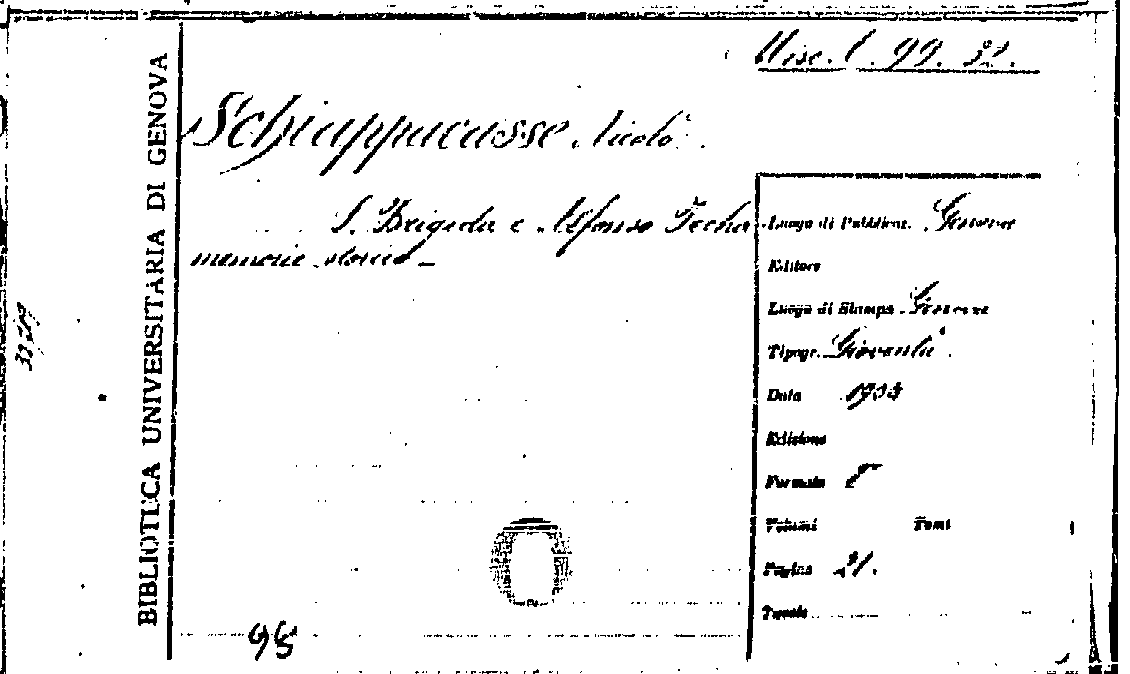 Misc. l. 99. 32.
Schiappacasse Nicolò.
S. Brigida e Alfonso Pecha
memorie storiche
BIBLIOTECA UNIVERSITARIA DI GENOVA
Luogo di Pubblicaz. Genova
Editore
Luogo di Stampa Genova
Tipogr. Gioventù
Data
Edizione
Formato 8°
Volumi Tomi
Pagine 21.
Tavole
95